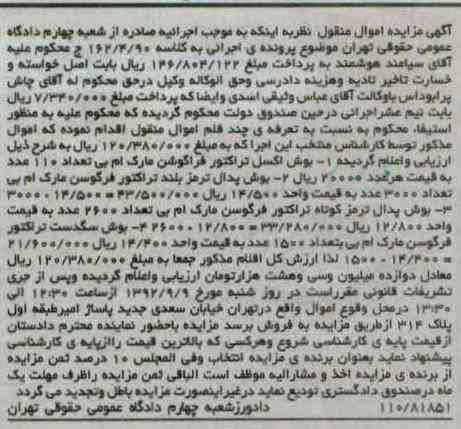 آگهی مزایده اموال منقول نظربه اینکه به موجب اجرائیه صادره از شعبه چهارم دادگاه
عمومی حقوقی تهران موضوع پرونده ی اجرائی به کلاسه ۱۶۲/۴/۹۰ ج محکوم علیه
آقای سیامند هوشمند به پرداخت مبلغ ۱۴۶/۸۰۴/۱۲۲ ریال بابت اصل خواسته و
خسارت تاخیر تادیه وهزینه دادرسی وحق الوکاله وکیل درحق محکوم له آقای چاش
پرابوداس باوکالت آقای عباس وثیقی اسدی وایضا که پرداخت مبلغ ۷/۳۴۰/۰۰۰ ریال
بابت نیم عشراجرائی درحین صندوق دولت محکوم گردیده که محکوم علیه به منظور
استیفاء محکوم به نسبت به تعرفه ی چند قلم اموال منقول اقدام نموده که اموال
مذکور توسط کارشناس منتخب این اجرا که به مبلغ ۱۲۰/۳۸۰/۰۰۰ ریال به شرح ذیل
ارزیابی واعلام گردیده ۱- بوش اکسل تراکتور فراگوشن مارک ام بی تعداد ۱۱۰ عدد
به قیمت هرعدد ۲۰۰۰۰۰ ریال ۲- بوش پدال ترمز بلند تراکتور فرگوسن مارک ام بی
تعداد ۳۰۰۰ عدد به قیمت واحد ۱۴/۵۰۰ ریال ۴۳/۵۰۰/۰۰۰ = ۱۴/۵۰۰ - ۳۰۰۰
۳- بوش پدال ترمز کوتاه تراکتور فرگوسن مارک ام بی تعداد ۲۶۰۰ عدد به قیمت
واحد ۱۲/۸۰۰ ریال ۳۳/۲۸۰/۰۰۰ = ۱۲/۸۰۰ - ۲۶۰۰ ۴- بوش سگدست تراکتور
فرگوسن مارک ام بی بتعداد ۱۵۰۰ عدد به قیمت واحد ۱۴/۴۰۰ ریال ۲۱/۶۰۰/۰۰۰
= ۱۴/۴۰۰ - ۱۵۰۰ لذا ارزش کل اقلام مذکور جمعا به مبلغ ۱۲۰/۳۸۰/۰۰۰ ریال
معادل دوازده میلیون وسی وهشت هزارتومان ارزیابی واعلام گردیده وپس از جری
تشریفات قانونی مقرراست در روز شنبه مورخ ۱۳۹۲/۹/۹ ازساعت ۱۲:۳۰ الی
۱۳:۳۰ درمحل وقوع اموال واقع درتهران خیابان سعدی جدید پاساژ امیرطبقه اول
پلاک ۳۱۴ ازطریق مزایده به فروش برسد مزایده باحضور نماینده محترم دادستان
ازقیمت پایه ی کارشناسی شروع وهرکسی که بالاترین قیمت راازپایه ی کارشناسی
پیشنهاد نماید بعنوان برنده ی مزایده انتخاب وفی المجلس ۱۰ درصد ثمن مزایده
از برنده ی مزایده اخذ و مشارالیه موظف است الباقی ثمن مزایده راظرف مهلت یک
ماه درصندوق دادگستری تودیع نماید درغیراینصورت مزایده باطل وتجدید می گردد
۱۱۰/۸۱۸۵۱ دادورزشعبه چهارم دادگاه عمومی حقوقی تهران